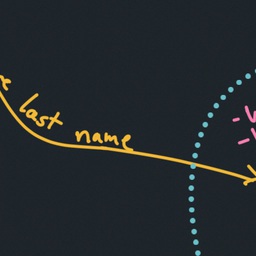 last name